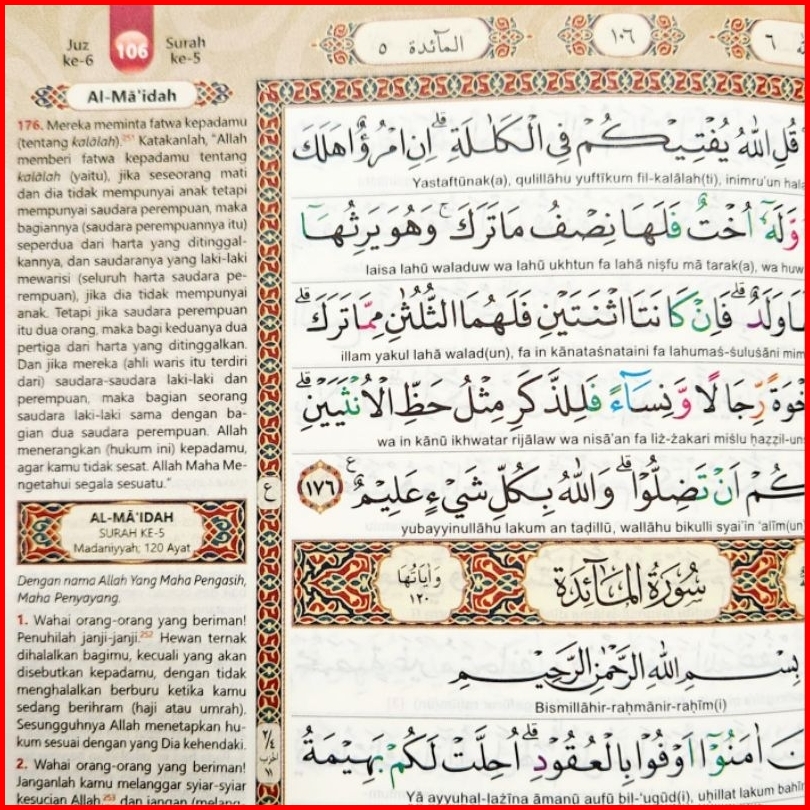 Juz
ke-6
106
Surah
ke-5
Al-Mā'idah
176. Mereka meminta fatwa kepadamu
(tentang kalālah).²⁵¹ Katakanlah, "Allah
memberi fatwa kepadamu tentang
kalālah (yaitu), jika seseorang mati
dan dia tidak mempunyai anak tetapi
mempunyai saudara perempuan, maka
bagiannya (saudara perempuannya itu)
seperdua dari harta yang ditinggal-
kannya, dan saudaranya yang laki-laki
mewarisi (seluruh harta saudara pe-
rempuan), jika dia tidak mempunyai
anak. Tetapi jika saudara perempuan
itu dua orang, maka bagi keduanya dua
pertiga dari harta yang ditinggalkan.
Dan jika mereka (ahli waris itu terdiri
dari) saudara-saudara laki-laki dan
perempuan, maka bagian seorang
saudara laki-laki sama dengan ba-
gian dua saudara perempuan. Allah
menerangkan (hukum ini) kepadamu,
agar kamu tidak sesat. Allah Maha Me-
ngetahui segala sesuatu."
AL-MĀ'IDAH
SURAH KE-5
Madaniyyah; 120 Ayat
Dengan nama Allah Yang Maha Pengasih,
Maha Penyayang.
1. Wahai orang-orang yang beriman!
Penuhilah janji-janji.²⁵² Hewan ternak
dihalalkan bagimu, kecuali yang akan
disebutkan kepadamu, dengan tidak
menghalalkan berburu ketika kamu
sedang berihram (haji atau umrah).
Sesungguhnya Allah menetapkan hu-
kum sesuai dengan yang Dia kehendaki.
2. Wahai orang-orang yang beriman!
Janganlah kamu melanggar syiar-syiar
kesucian Allah,²⁵³ dan jangan (melang-
٦
١٠٦
المآئدة ٥
قُلِ اللّٰهُ يُفْتِيْكُمْ فِى الْكَلٰلَةِ ۗاِنِ امْرُؤٌا هَلَكَ
Yastaftūnak(a), qulillāhu yuftīkum fil-kalālah(ti), inimru'un hala
وَّلَهٗٓ اُخْتٌ فَلَهَا نِصْفُ مَا تَرَكَ ۚوَهُوَ يَرِثُهَآ
laisa lahū waladuw wa lahū ukhtun fa lahā niṣfu mā tarak(a), wa huw
وَلَدٌ ۗفَاِنْ كَانَتَا اثْنَتَيْنِ فَلَهُمَا الثُّلُثٰنِ مِمَّا تَرَكَ ۗ
illam yakul lahā walad(un), fa in kānataśnataini fa lahumaś-śuluśāni mim
رِّجَالًا وَّنِسَاۤءً فَلِلذَّكَرِ مِثْلُ حَظِّ الْاُنْثَيَيْنِۗ
wa in kānū ikhwatar rijālaw wa nisā'an fa liż-żakari miślu ḥaẓẓil-uns
اَنْ تَضِلُّوْا ۗ وَاللّٰهُ بِكُلِّ شَيْءٍ عَلِيْمٌ ࣖ ﴿١٧٦﴾
ع
yubayyinullāhu lakum an taḍillū, wallāhu bikulli syai'in 'alīm(un
سُوْرَةُ الْمَآئِدَة
وَاٰيَاتُهَا
١٢٠
بِسْمِ اللّٰهِ الرَّحْمٰنِ الرَّحِيْمِ
Bismillāhir-raḥmānir-raḥīm(i)
اٰمَنُوْٓا اَوْفُوْا بِالْعُقُوْدِۗ اُحِلَّتْ لَكُمْ بَهِيْمَةُ
Yā ayyuhal-lażīna āmanū aufū bil-'uqūd(i), uḥillat lakum bahīm